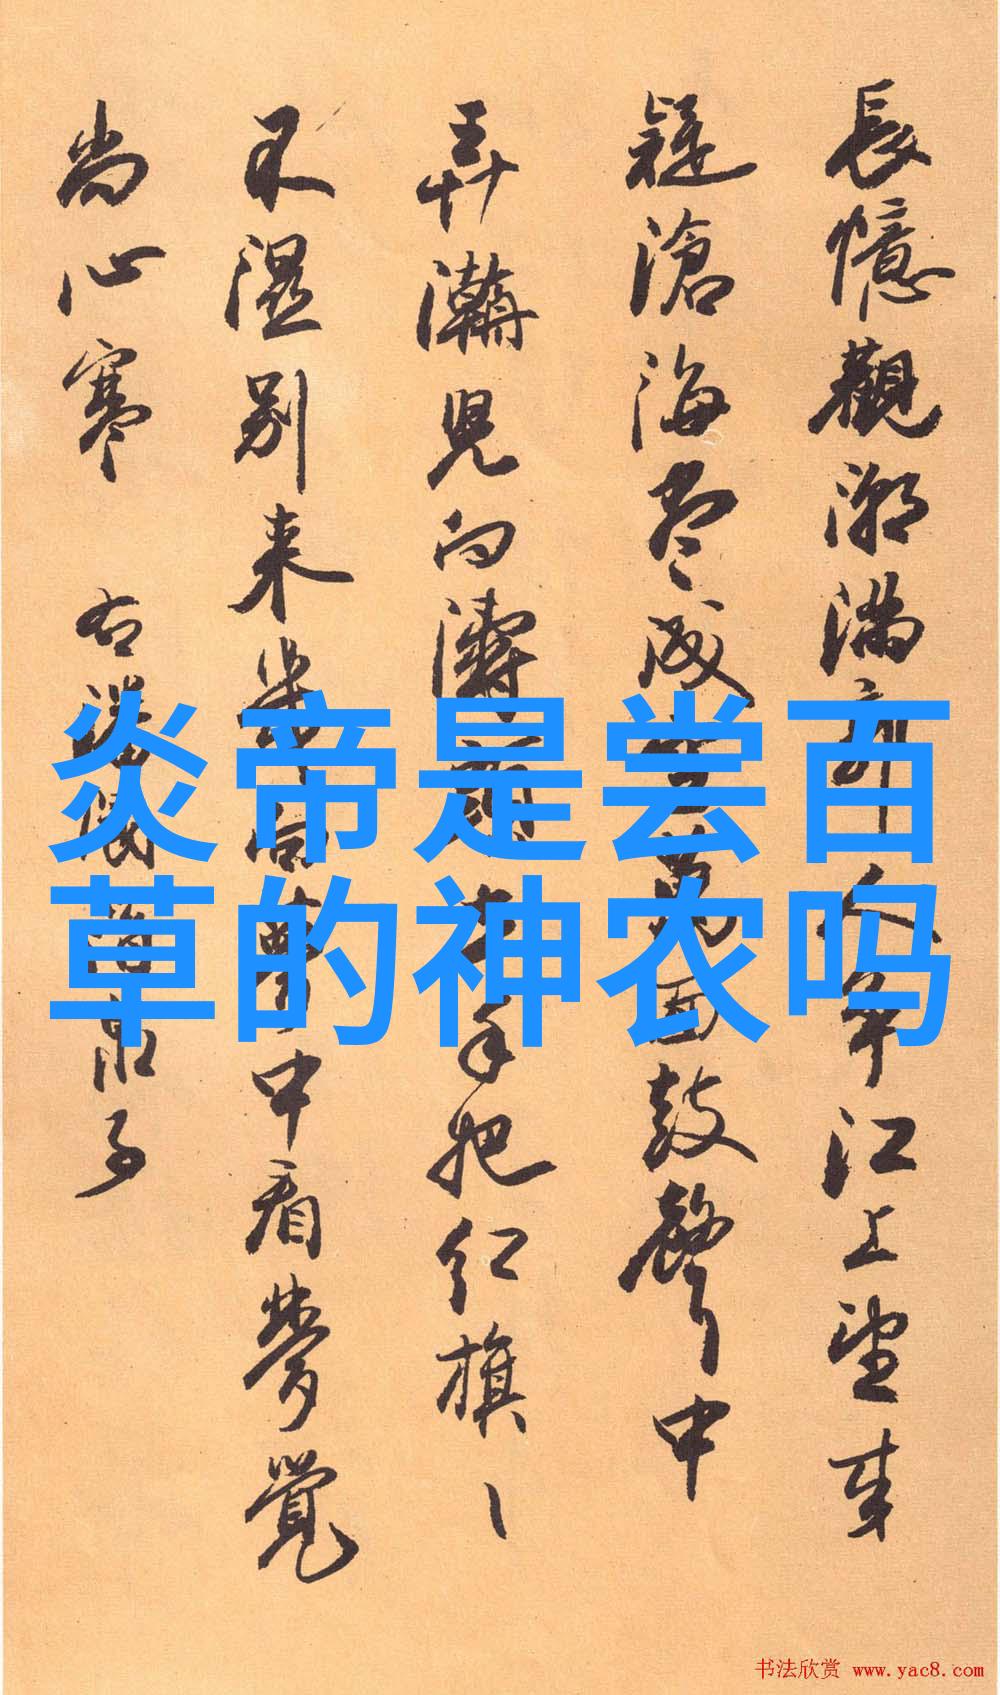 長憶觀潮滿郭人争江上望来
疑滄海盡成空萬面鼓聲中
弄濤兒向濤頭立手把紅旗〻
不濕別来幾向夢中看夢覺
尚心寒 右潘閬酒泉子
炎帝是尝百
草的神农吗
书法欣赏 www.yac8.com